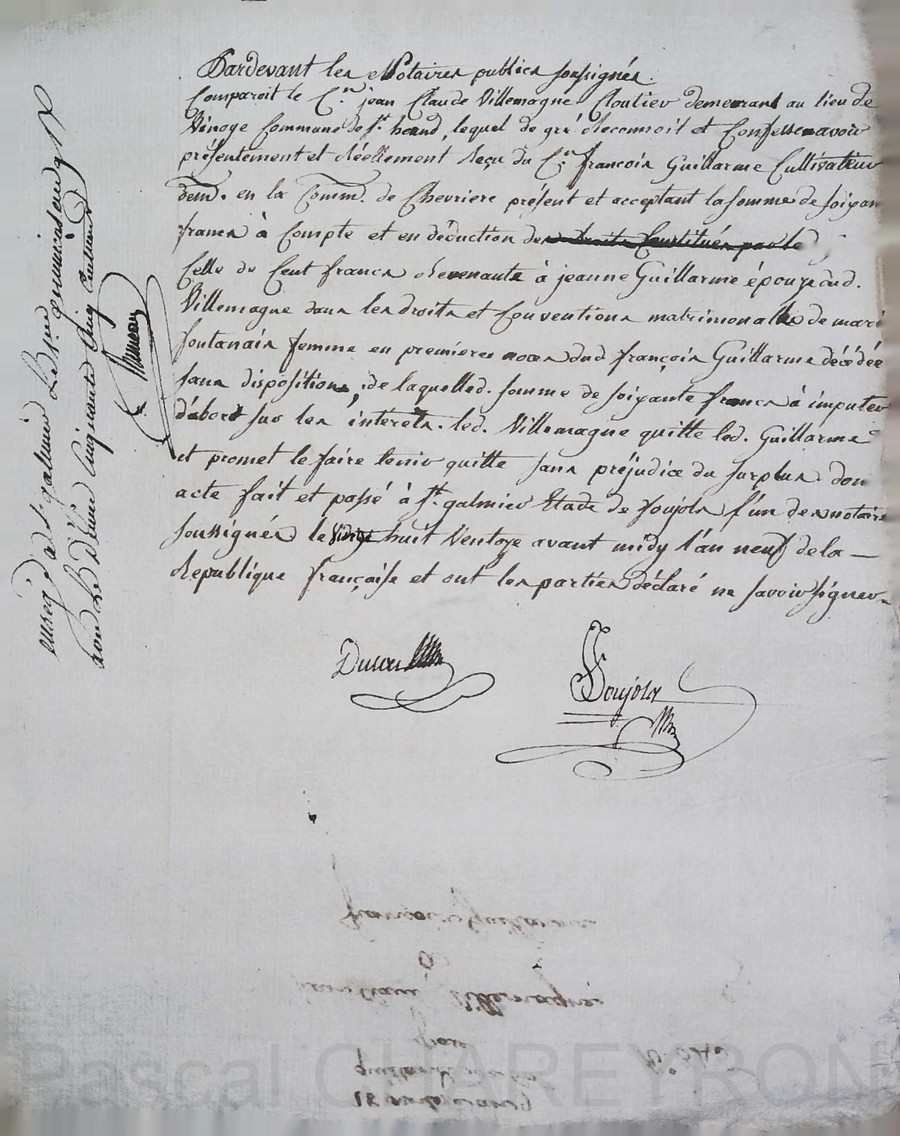 Pardevant les Notaires publics soussignés.
Comparoit le C.en jean Claude Villemagne Cloutier demeurant au lieu de
Vénoge Commune de St. heand, lequel de gré Reconnoit et Confesse avoir
présentement et Réellement Reçu du C.en françois Guillarme Cultivateur
dem.t en la Comm.e de Chevriere présent et acceptant la somme de soixan
francs à Compte et en déduction des droits Constitués par le
Celle de Cent francs Revenante à jeanne Guillarme épouze aud.
Villemagne dans les droits et Conventions matrimonalles de mari
fontanais femme en premieres noces dud françois Guillarme décédée
sans disposition, de laquelle d. somme de soixante francs à imputer
d'abort sur les interets. led. Villemagne quitte led. Guillarme
et promet le faire tenir quitte sans préjudice du surplus don
acte fait et passé à St. galmier Etude de Soujols l'un des notaire
soussignés le vingt huit Ventoze avant midy l'an neuf de la —
Republique française et ont les parties déclaré ne savoir signer.
Soujols
enreg. à St. galmier le
françois Guillarme
à
jean Claude Villemagne
Pascal CHAREYRON